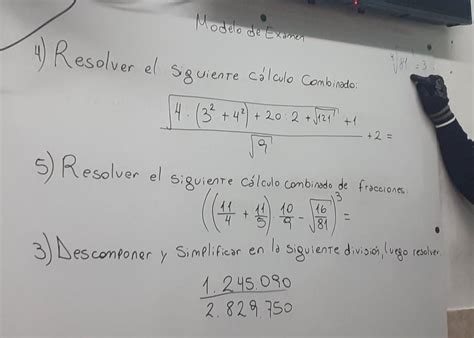 Modelo de Examen
4) Resolver el siguiente cálculo combinado:
√(4·(3² + 4²) + 20·2 + √121 + 1) / √9 + 2 =
5) Resolver el siguiente cálculo combinado de fracciones:
((11/4 + 11/5) · 10/9 - √(16/81))³ =
3) Descomponer y simplificar en la siguiente división, luego resolver.
1.245.090
2.829.750